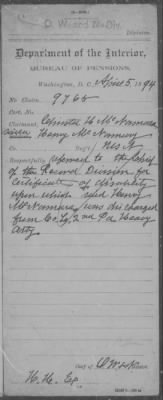 O. W. and N. Div.
Division.
Department of the Interior,
BUREAU OF PENSIONS,
Washington, D. C., April 5, 1894
No. Claim, 9766
Cert. No.
Claimant, H. McNamara
Henry McNamara
Co. Reg't
Respectfully referred to the Chief
of the Record Division for
Certificate of disability
upon which said Henry
McNamara was discharged
from Co. 2nd Pa Heavy
Arty
Chief of O. W. & N. Division